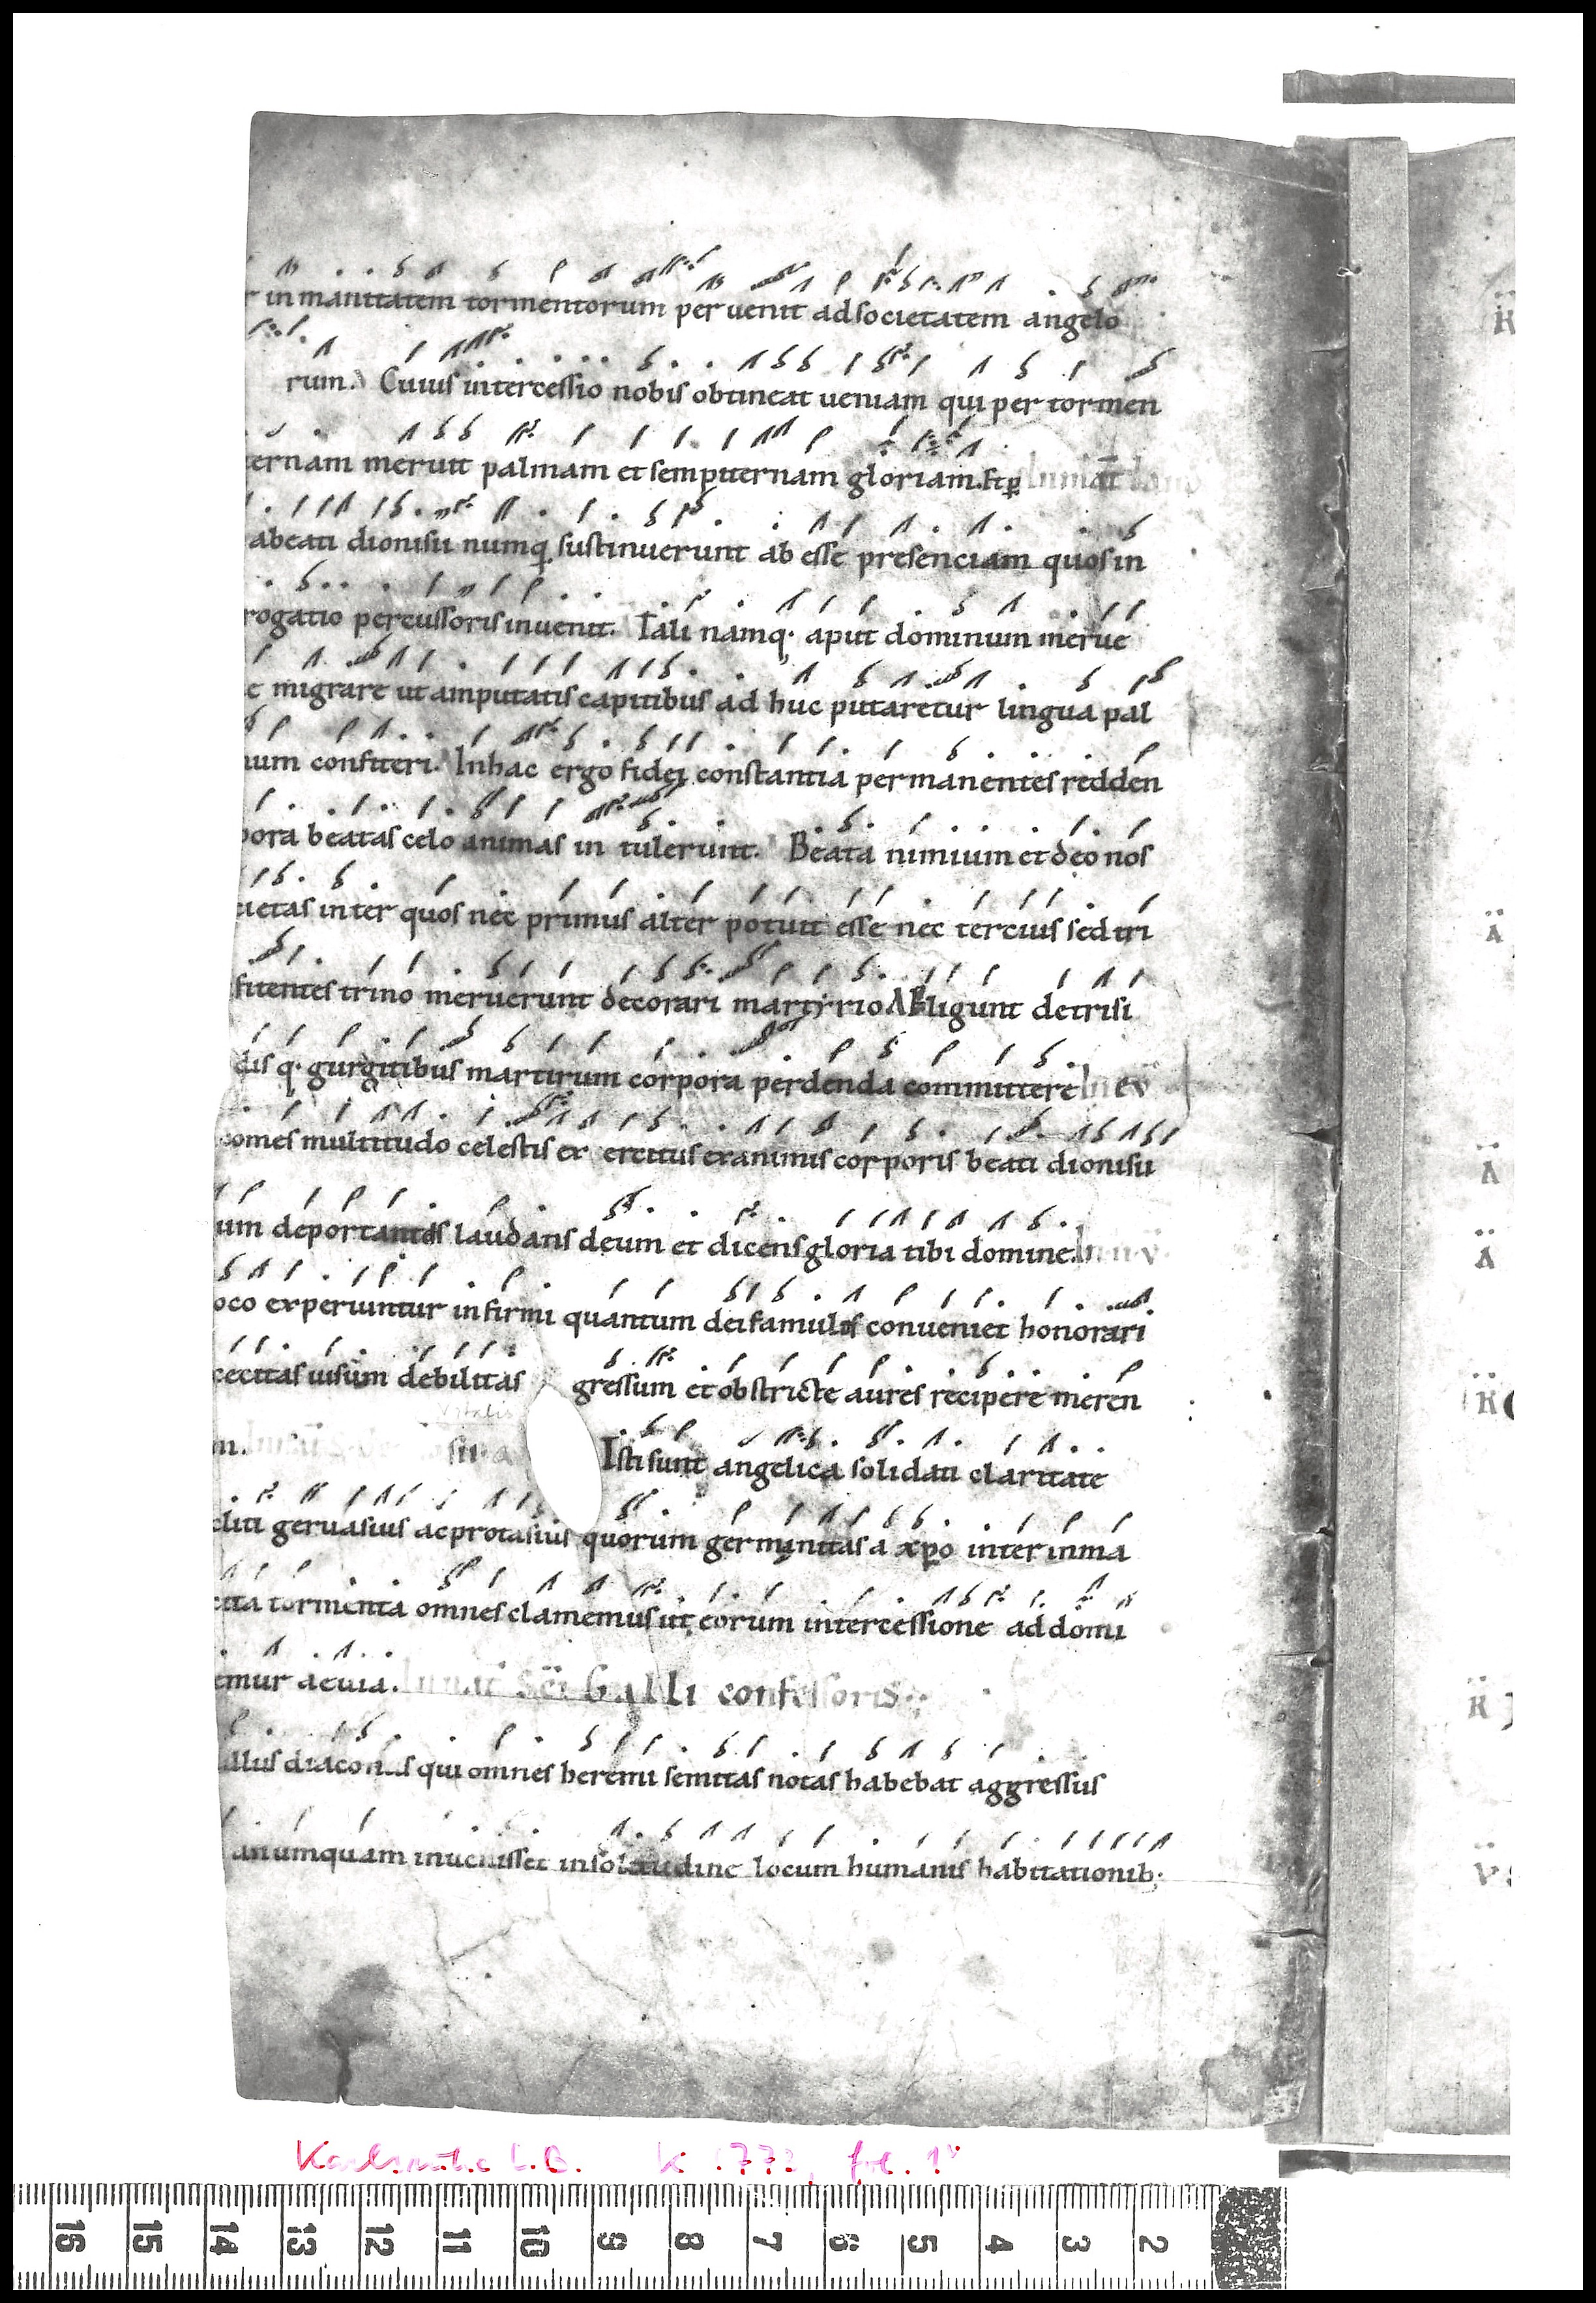 r inmanitatem tormentorum peruenit adsocietatem angelo
rum. Cuius intercessio nobis obtineat ueniam qui per tormen
ternam meruit palmam et sempiternam gloriam. Et ꝑ
abeati dionisii numq sustinuerunt ab esse presenciam quos in
rogatio percussoris inuenit. Tali namq· aput dominum merue
e migrare ut amputatis capitibus ad huc putaretur lingua pal
num confiteri. Inhac ergo fidei constantia permanentes redden
pora beatas celo animas in tulerunt. Beata nimium et deo nos
cietas inter quos nec primus alter potuit esse nec tercius sed tri
fitentes trino meruerunt decorari martyrio Alligunt detrisi
dis q· gurgitibus martirum corpora perdenda committere
comes multitudo celestis ex ercitus exanimis corporis beati dionisii
um deportantis laudans deum et dicens gloria tibi domine.
oco experiuntur infirmi quantum dei famulos conueniet honorari
cecitas uisum debilitas gressum et obstricte aures recipere meren
Vitalis
m. Isti sunt angelica solidati claritate
cliti geruasius ac protasius quorum germanitas a xpo inter inma
cita tormenta omnes clamemus ut eorum intercessione ad domi
emur aeuia. sci Galli confessoris
illus diaconus qui omnes heremi semitas notas habebat aggressus
anumquam inuenisset insolitudine locum humanis habitationib;
Karlsruhe L.B. K 772, fol. 1v
16 15 14 13 12 11 10 9 8 7 6 5 4 3 2